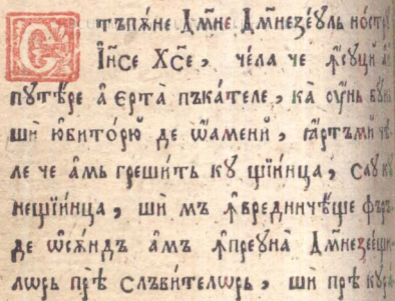 Стъпѫ́не Дм҃не Дм҃незе́ꙋль ностр
І҆и҃се Х҃се, че́ла че ꙟ҆сꙋци а҆й
пꙋтѣ́ре а҆ є҆рта̀ пъка́теле, ка̀ ᲂу҆́нь бꙋ́н
ши ю҆бито́рю де ѡ҆́амени, ꙗ҆ртъми чѣ́
ле че а҆мь греши́ть кꙋ щіи́нца, саꙋ кꙋ
нещіи́нца, ши мъ ꙟ҆вредничѣ́ще фъръ
де ѡ҆сѫ́ндъ а҆мъ ꙟ҆преꙋна̀ Дм҃незее́щи
лѡрь прѣ слъви́телѡрь, ши прѣ кꙋра